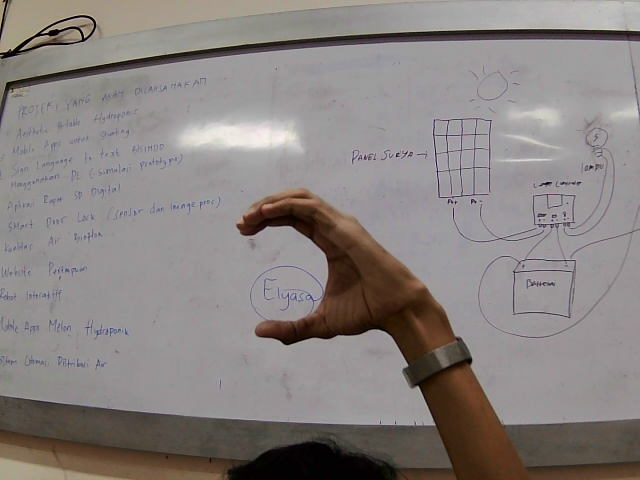 PROJEK YANG AKAN DILAKSANAKAN
Aesthetic Potable Hydroponic
Mobile Apps untuk Stunting
Sign Language to text BISINDO
Menggunakan DL (Simulasi prototype)
Aplikasi Rapor SD Digital
SMart Door Lock (sensor dan image proc)
kualitas Air Bioflok
Website Perempuan
Robot Interaktif
Mobile Apps Melon Hydroponik
Sistem Otomasi Distribusi Air
Elyasa
PANEL SURYA
P+
P-
LAMPU
BATERAI